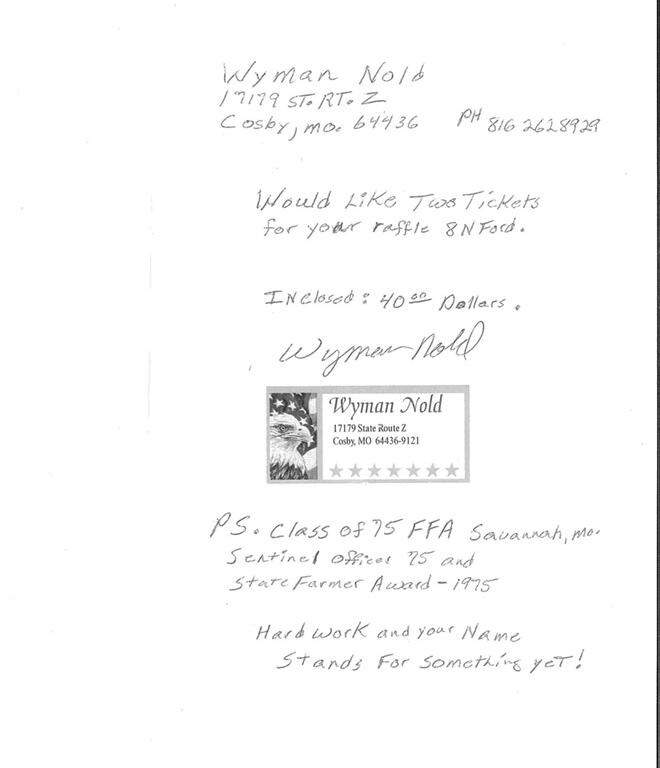 Wyman Nold
17179 ST. RT. Z
Cosby, Mo. 64436 PH 816 2628929
Would Like Two Tickets
for your raffle 8N Ford.
INclosed: 40 00 Dollars.
Wyman Nold
Wyman Nold
17179 State Route Z
Cosby, MO 64436-9121
PS. Class of 75 FFA Savannah, Mo.
Sentinel Officer 75 and
State Farmer Award - 1975
Hard work and your Name
Stands For something yeT!